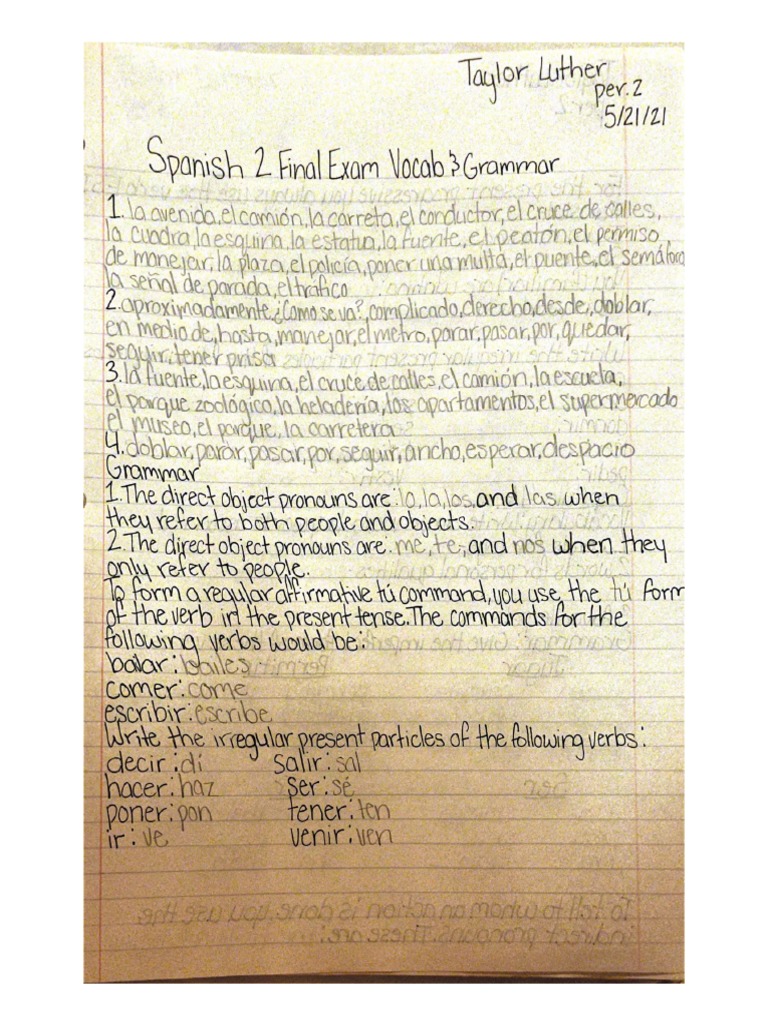 Taylor Luther
per.2
5/21/21
Spanish 2 Final Exam Vocab & Grammar
1. la avenida, el camión, la carreta, el conductor, el cruce de calles,
la cuadra, la esquina, la estatua, la fuente, el peatón, el permiso
de manejar, la plaza, el policía, poner una multa, el puente, el semáforo
la señal de parada, el trafico
2. aproximadamente, ¿Como se va?, complicado, derecho, desde, doblar,
en medio de, hasta, manejar, el metro, parar, pasar, por, quedar,
seguir, tener prisa
3. la fuente, la esquina, el cruce de calles, el camión, la escuela,
el parque zoológico, la heladería, los apartamentos, el supermercado
el museo, el parque, la carretera
4. doblar, parar, pasar, por, seguir, ancho, esperar, despacio
Grammar
1. The direct object pronouns are: lo, la, los, and las when
they refer to both people and objects.
2. The direct object pronouns are: me, te, and nos when they
only refer to people.
To form a regular affirmative tú command, you use the tú form
of the verb in the present tense. The commands for the
following verbs would be:
bailar: bailes
comer: come
escribir: escribe
Write the irregular present particles of the following verbs:
decir: di salir: sal
hacer: haz ser: sé
poner: pon tener: ten
ir: ve venir: ven